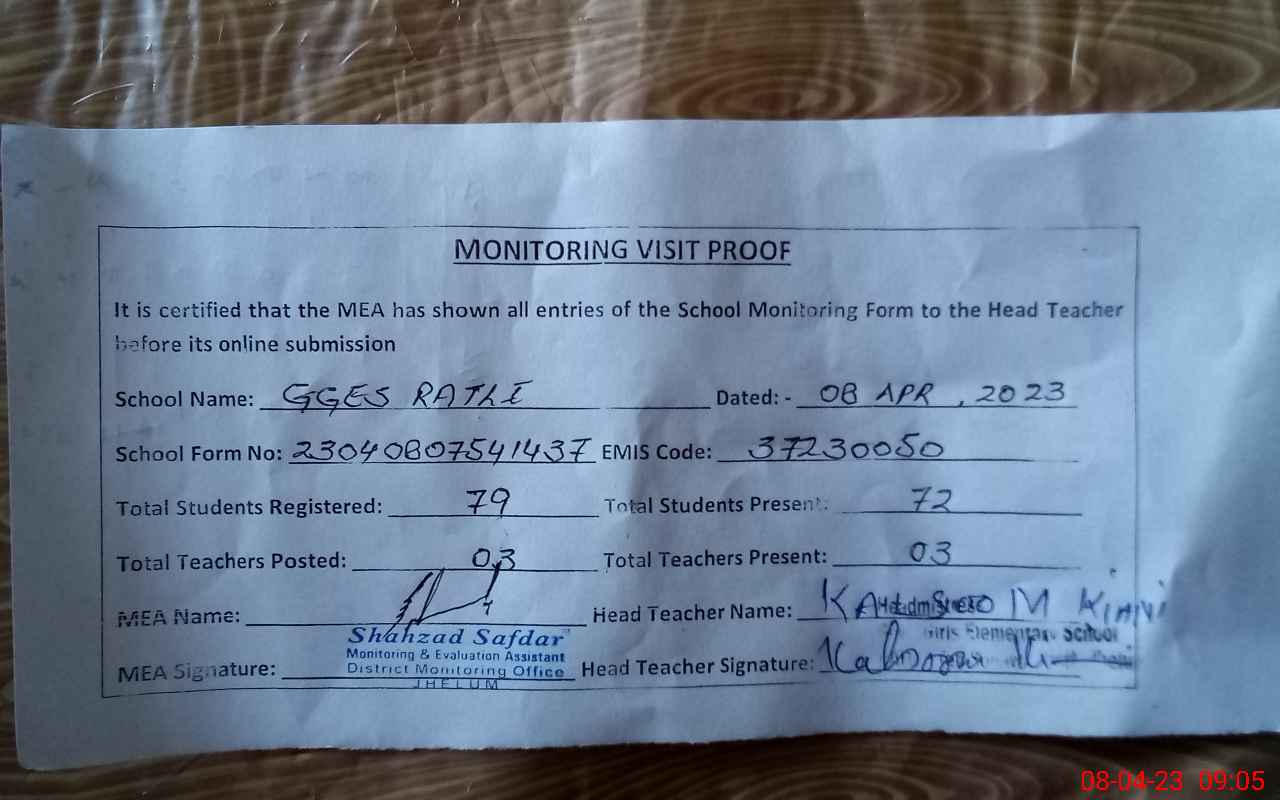 MONITORING VISIT PROOF
It is certified that the MEA has shown all entries of the School Monitoring Form to the Head Teacher
before its online submission
School Name: GGES RATHI Dated: - 08 APR, 2023
School Form No: 23040807541437 EMIS Code: 37230050
Total Students Registered: 79 Total Students Present: 72
Total Teachers Posted: 03 Total Teachers Present: 03
MEA Name: Head Teacher Name: M KIANI
Shahzad Safdar Girls Elementary School
Monitoring & Evaluation Assistant
MEA Signature: District Monitoring Office Head Teacher Signature:
JHELUM
08-04-23 09:05